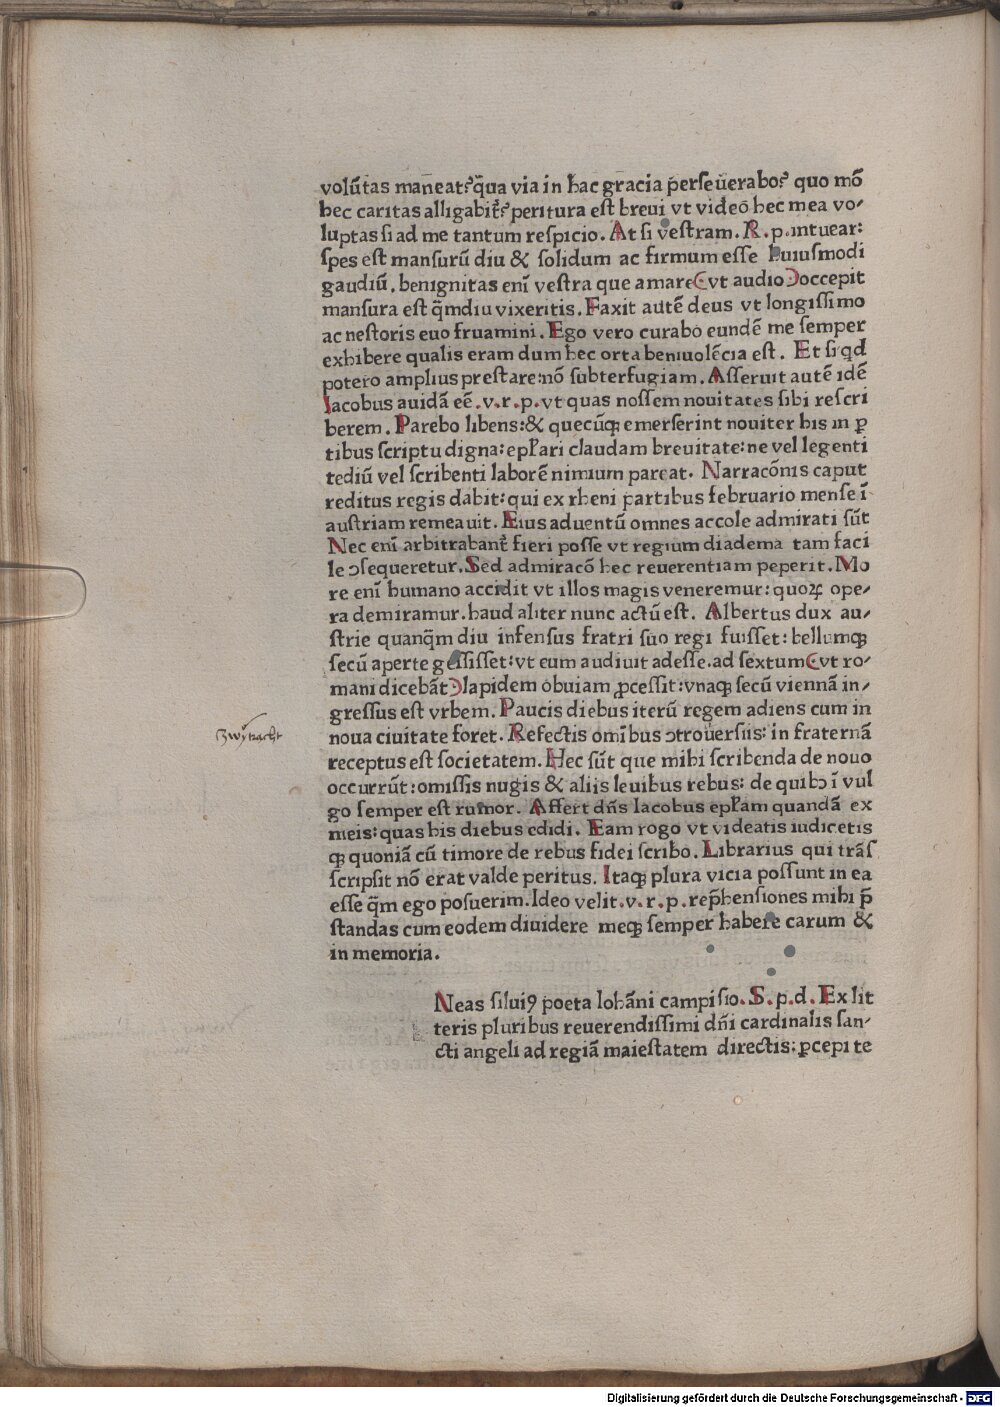 volūtas maneat? q̄a via in hac gracia perseuerabo? quo mō
hec caritas alligabit̄? peritura est breui vt videō hec mea vo⸗
luptas si ad me tantum respicio. At si vestram .R.p. intuear:
spes est mansurū diu & solidum ac firmum esse huiusmodi
gaudiū, benignitas enī vestra que amare (vt audio) occepit
mansura est q̄mdiu vixeritis. Faxit autē deus vt longissimo
ac nestoris euo fruamini. Ego vero curabo eundē me semper
exhibere qualis eram dum hec orta beniuolēcia est. Et si qd
potero amplius prestare: nō subterfugiam. Asseruit autē idē
Iacobus auidā eē .v.r.p. vt quas nossem nouitates sibi rescri
berem. Parebo libens: & quecūqꝫ emerserint nouiter his in ꝑ
tibus scriptu digna: eplari claudam breuitate: ne vel legenti
tediū vel scribenti laborē nimium pareat. Narracōnis caput
reditus regis dabit: qui ex rheni partibus februario mense ī
austriam remeauit. Eius aduentū omnes accole admirati sūt
Nec enī arbitrabant̄ fieri posse vt regium diadema tam faci
le ↄsequeretur. Sed admiracō hec reuerentiam peperit. Mo
re enī humano accidit vt illos magis veneremur: quoꝝ ope⸗
ra demiramur. haud aliter nunc actū est. Albertus dux au⸗
strie quanq̄m diu infensus fratri suo regi fuisset: bellumqꝫ
secū aperte gessisset: vt eum audiuit adesse. ad sextum (vt ro⸗
mani dicebāt) lapidem obuiam ꝓcessit: vnaqꝫ secū viennā in⸗
gressus est vrbem. Paucis diebus iterū regem adiens cum in
noua ciuitate foret. Refectis omībus ↄtrouersiis: in fraternā
zwytracht
receptus est societatem. Hec sūt que mihi scribenda de nouo
occurrūt: omissis nugis & aliis leuibus rebus: de quibꝰ ī vul
go semper est rumor. Affert dn̄s Iacobus eplam quandā ex
meis: quas his diebus edidi. Eam rogo vt videatis iudicetis
qꝫ quoniā cū timore de rebus fidei scribo. Librarius qui trās
scripsit nō erat valde peritus. Itaqꝫ plura vicia possunt in ea
esse q̄m ego posuerim. Ideo velit .v.r.p. rep̄hensiones mihi p̄
standas cum eodem diuidere meqꝫ semper habere carum &
in memoria.
Neas siluiꝰ poeta Iohāni campisio. S.p.d. Ex lit
teris pluribus reuerendissimi dn̄i cardinalis san⸗
cti angeli ad regiā maiestatem directis: ꝑcepi te
Digitalisierung gefördert durch die Deutsche Forschungsgemeinschaft - DFG